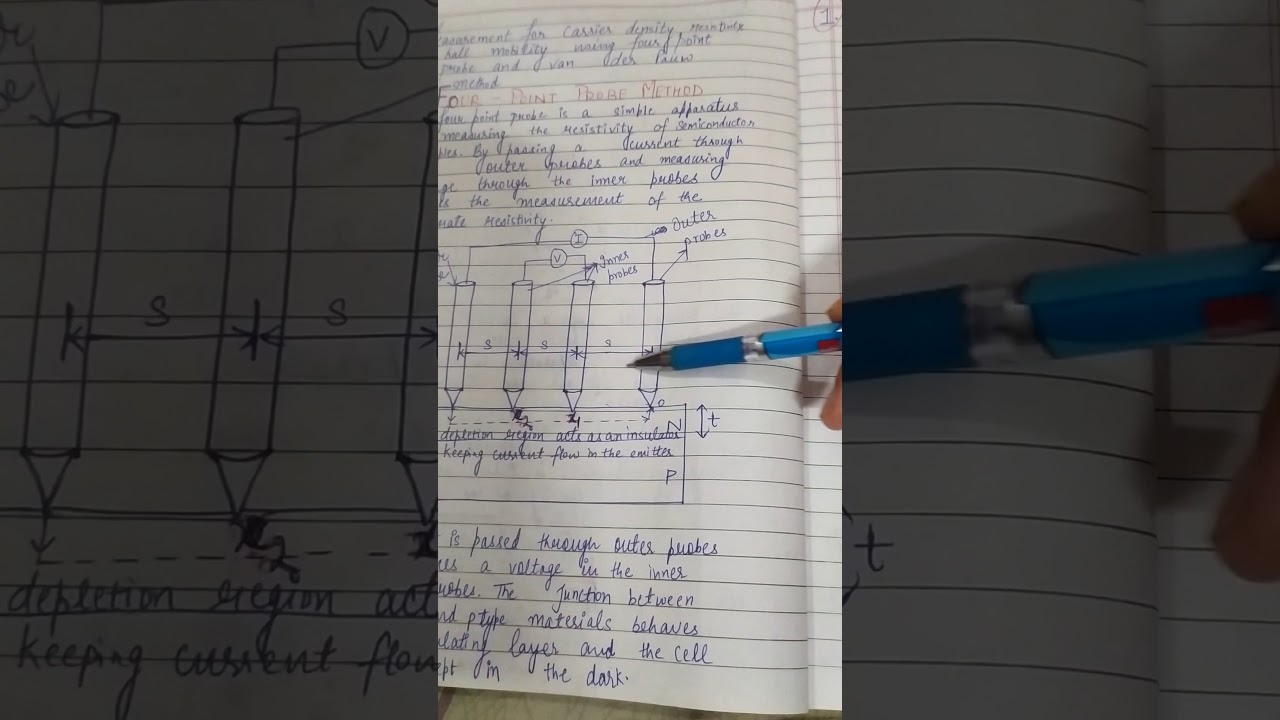 1
measurement for carrier density, resistivity
hall mobility using four point
probe and van der Pauw
method
FOUR-POINT PROBE METHOD
four point probe is a simple apparatus
measuring the resistivity of semiconductor
By passing a current through
outer probes and measuring
through the inner probes
the measurement of the
resistivity.
I
outer
probes
V
Inner
probes
s s s
x2 x1 0
t
depletion region acts as an insulator
N
keeping current flow in the emitter
P
is passed through outer probes
a voltage in the inner
probes. The Junction between
and ptype materials behaves
layer and the cell
in the dark.
V
s s
t
depletion region act
keeping current flow